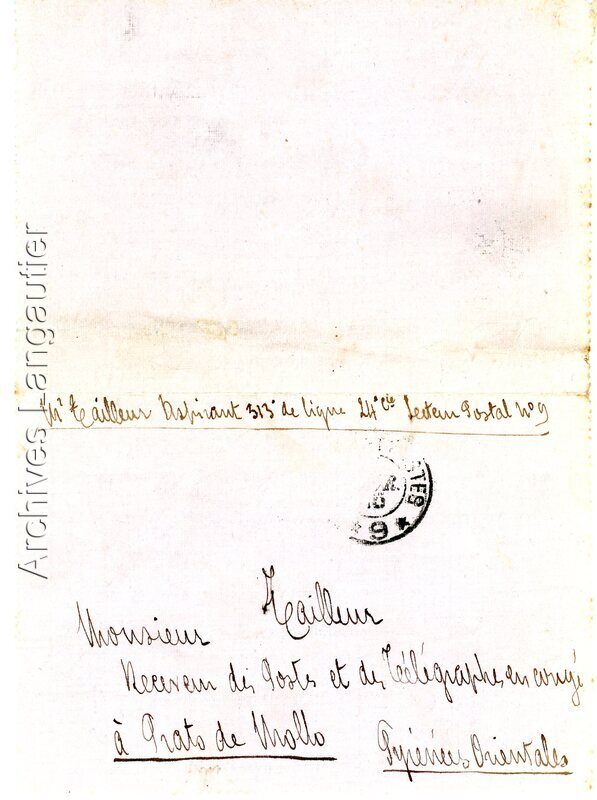 Archives Langautier
Mr Tailleur Aspirant 313e de ligne 24e Cie Secteur Postal no 9
STES
* 9 *
Monsieur Tailleur
Receveur des Postes et des Télégraphes en congé
à Prats de Mollo Pyrénées Orientales